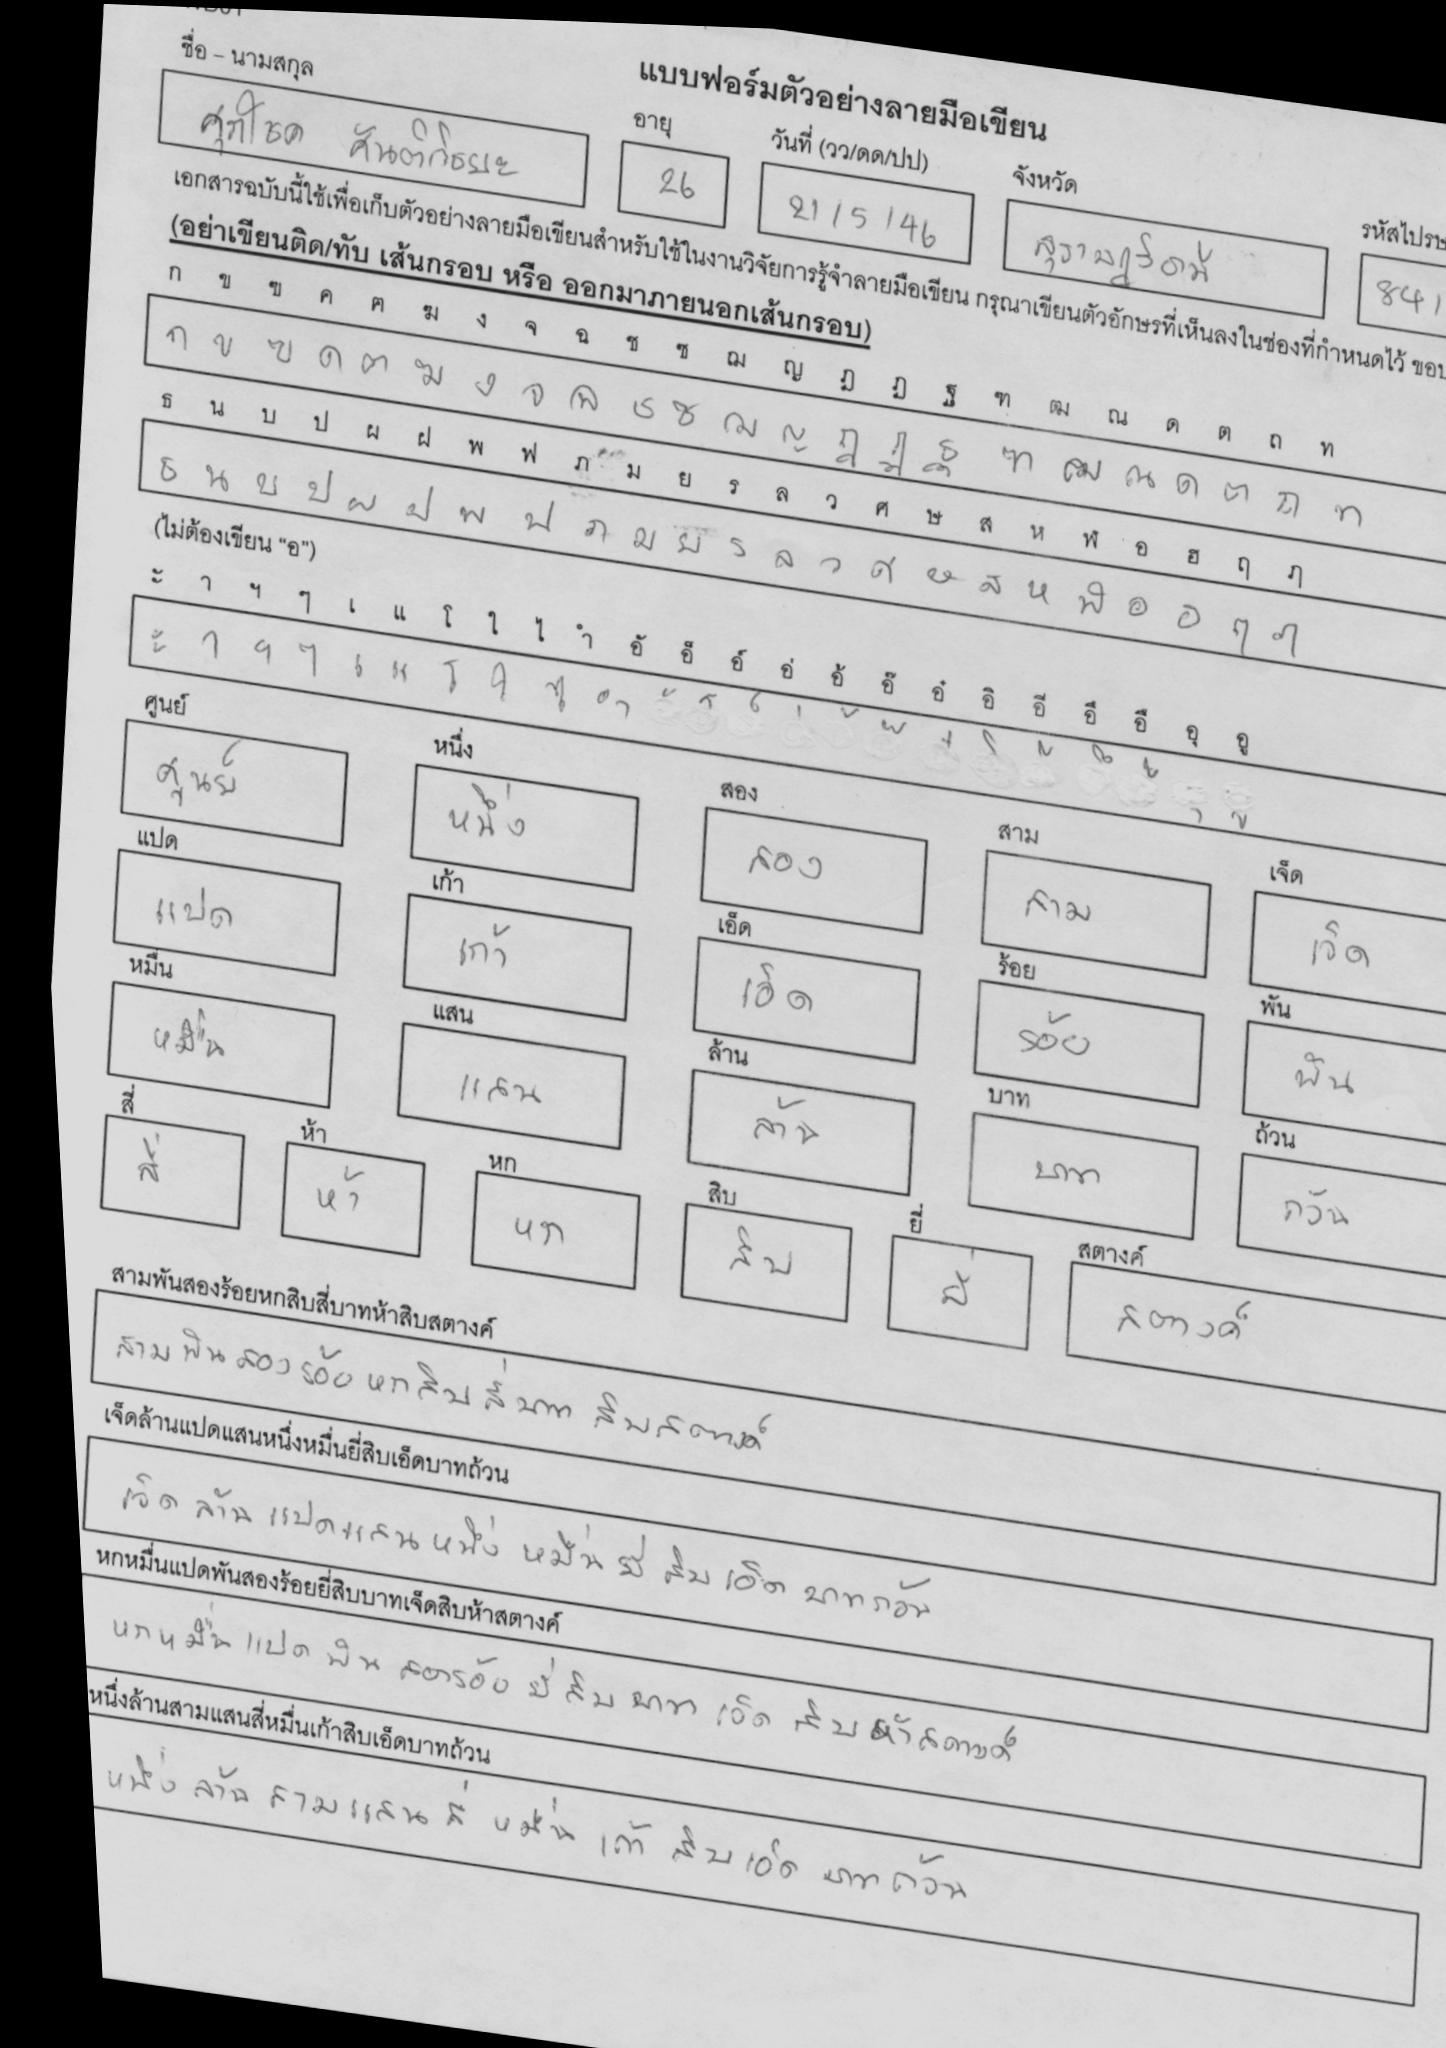 แบบฟอร์มตัวอย่างลายมือเขียน
ชื่อ – นามสกุล อายุ วันที่ (วว/ดด/ปป) จังหวัด
ศุภโชค 26 21/5/46 สุราษฎร์ธานี 841
เอกสารฉบับนี้ใช้เพื่อเก็บตัวอย่างลายมือเขียนสำหรับใช้ในงานวิจัยการรู้จำลายมือเขียน กรุณาเขียนตัวอักษรที่เห็นลงในช่องที่กำหนดไว้
(อย่าเขียนติด/ทับ เส้นกรอบ หรือ ออกมาภายนอกเส้นกรอบ)
ก ข ฃ ค ฅ ฆ ง จ ฉ ช ซ ฌ ญ ฎ ฏ ฐ ฑ ฒ ณ ด ต ถ ท
ก ข ฃ ค ฅ ฆ ง จ ฉ ช ซ ฌ ญ ฎ ฏ ฐ ฑ ฒ ณ ด ต ถ ท
ธ น บ ป ผ ฝ พ ฟ ภ ม ย ร ล ว ศ ษ ส ห ฬ อ ฮ ฤ ฦ
ธ น บ ป ผ ฝ พ ฟ ภ ม ย ร ล ว ศ ษ ส ห ฬ อ ฮ ฤ ฦ
(ไม่ต้องเขียน “อ”)
ะ า ฯ ๆ เ แ โ ใ ไ ำ อั อ็ อ์ อ่ อ้ อ๊ อ๋ อิ อี อึ อื อุ อู
ะ า ฯ ๆ เ แ โ ใ ไ ำ
ศูนย์ หนึ่ง สอง สาม เจ็ด
ศูนย์ หนึ่ง สอง สาม เจ็ด
แปด เก้า เอ็ด ร้อย พัน
แปด เก้า เอ็ด ร้อย พัน
หมื่น แสน ล้าน บาท ถ้วน
หมื่น แสน ล้าน บาท ถ้วน
สี่ ห้า หก สิบ ยี่ สตางค์
สี่ ห้า หก สิบ ยี่ สตางค์
สามพันสองร้อยหกสิบสี่บาทห้าสิบสตางค์
สามพันสองร้อยหกสิบสี่บาท สิบสตางค์
เจ็ดล้านแปดแสนหนึ่งหมื่นยี่สิบเอ็ดบาทถ้วน
เจ็ด ล้าน แปดแสน หนึ่ง หมื่น ยี่ สิบ เอ็ด บาทถ้วน
หกหมื่นแปดพันสองร้อยยี่สิบบาทเจ็ดสิบห้าสตางค์
หกหมื่น แปด พัน สองร้อย ยี่ สิบ บาท เจ็ด สิบ ห้าสตางค์
หนึ่งล้านสามแสนสี่หมื่นเก้าสิบเอ็ดบาทถ้วน
หนึ่ง ล้าน สามแสน สี่ หมื่น เก้า สิบ เอ็ด บาทถ้วน